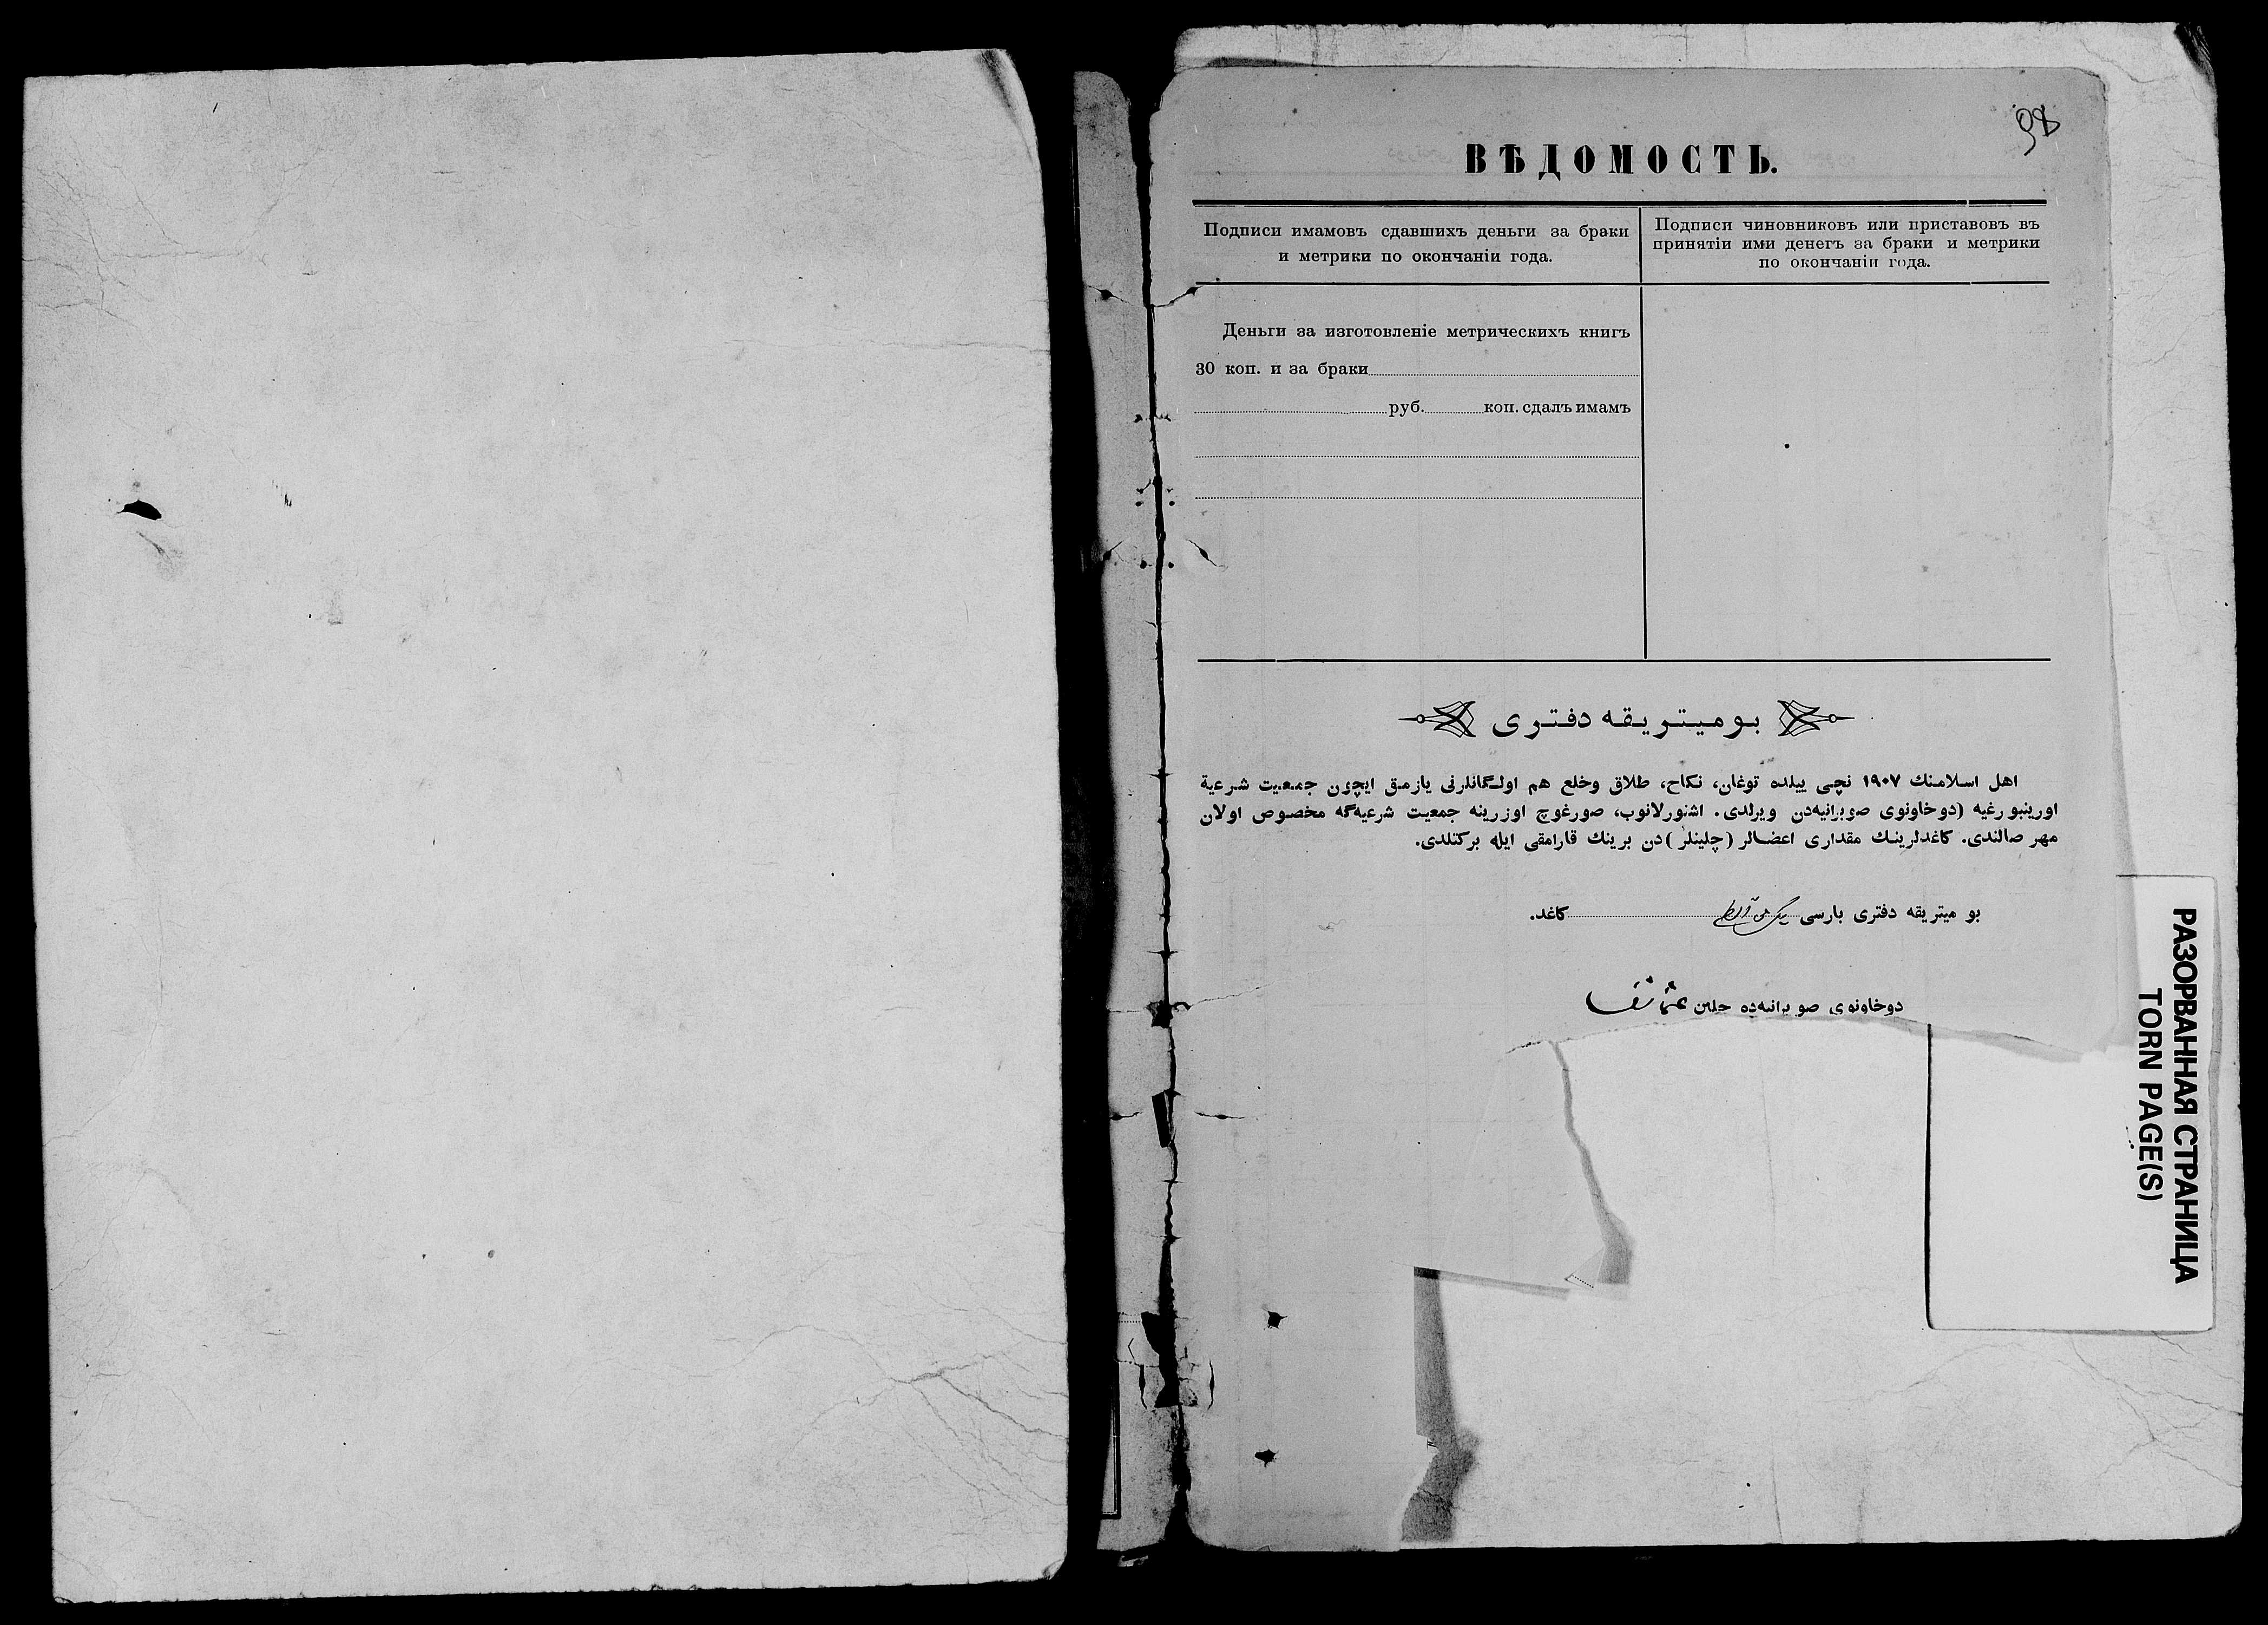 98
ВѢДОМОСТЬ.
Подписи имамовъ сдавшихъ деньги за браки
и метрики по окончаніи года.
Подписи чиновниковъ или приставовъ въ
принятіи ими денегъ за браки и метрики
по окончаніи года.
Деньги за изготовленіе метрическихъ книгъ
30 коп. и за браки
руб. коп. сдалъ имамъ
بو ميتريقه دفترى
اهل اسلامنك ١٩٠٧ نچى ييلده توغان، نكاح، طلاق وخلع هم اولـگانلرنى يازمق ايچون جمعيت شرعية
اورينبورغيه (دوخاونوى صوبرانيه‌دن ويرلدى. اشنورلانوب، صورغوچ اوزرينه جمعيت شرعيه‌گه مخصوص اولان
مهر صالندى. كاغدلرينك مقدارى اعضالر (چلينلر) دن برينك قارامقى ايله بركتلدى.
بو ميتريقه دفترى بارسى كاغد.
دوخاونوى صوبرانيه‌ده چلين
РАЗОРВАННАЯ СТРАНИЦА
TORN PAGE(S)